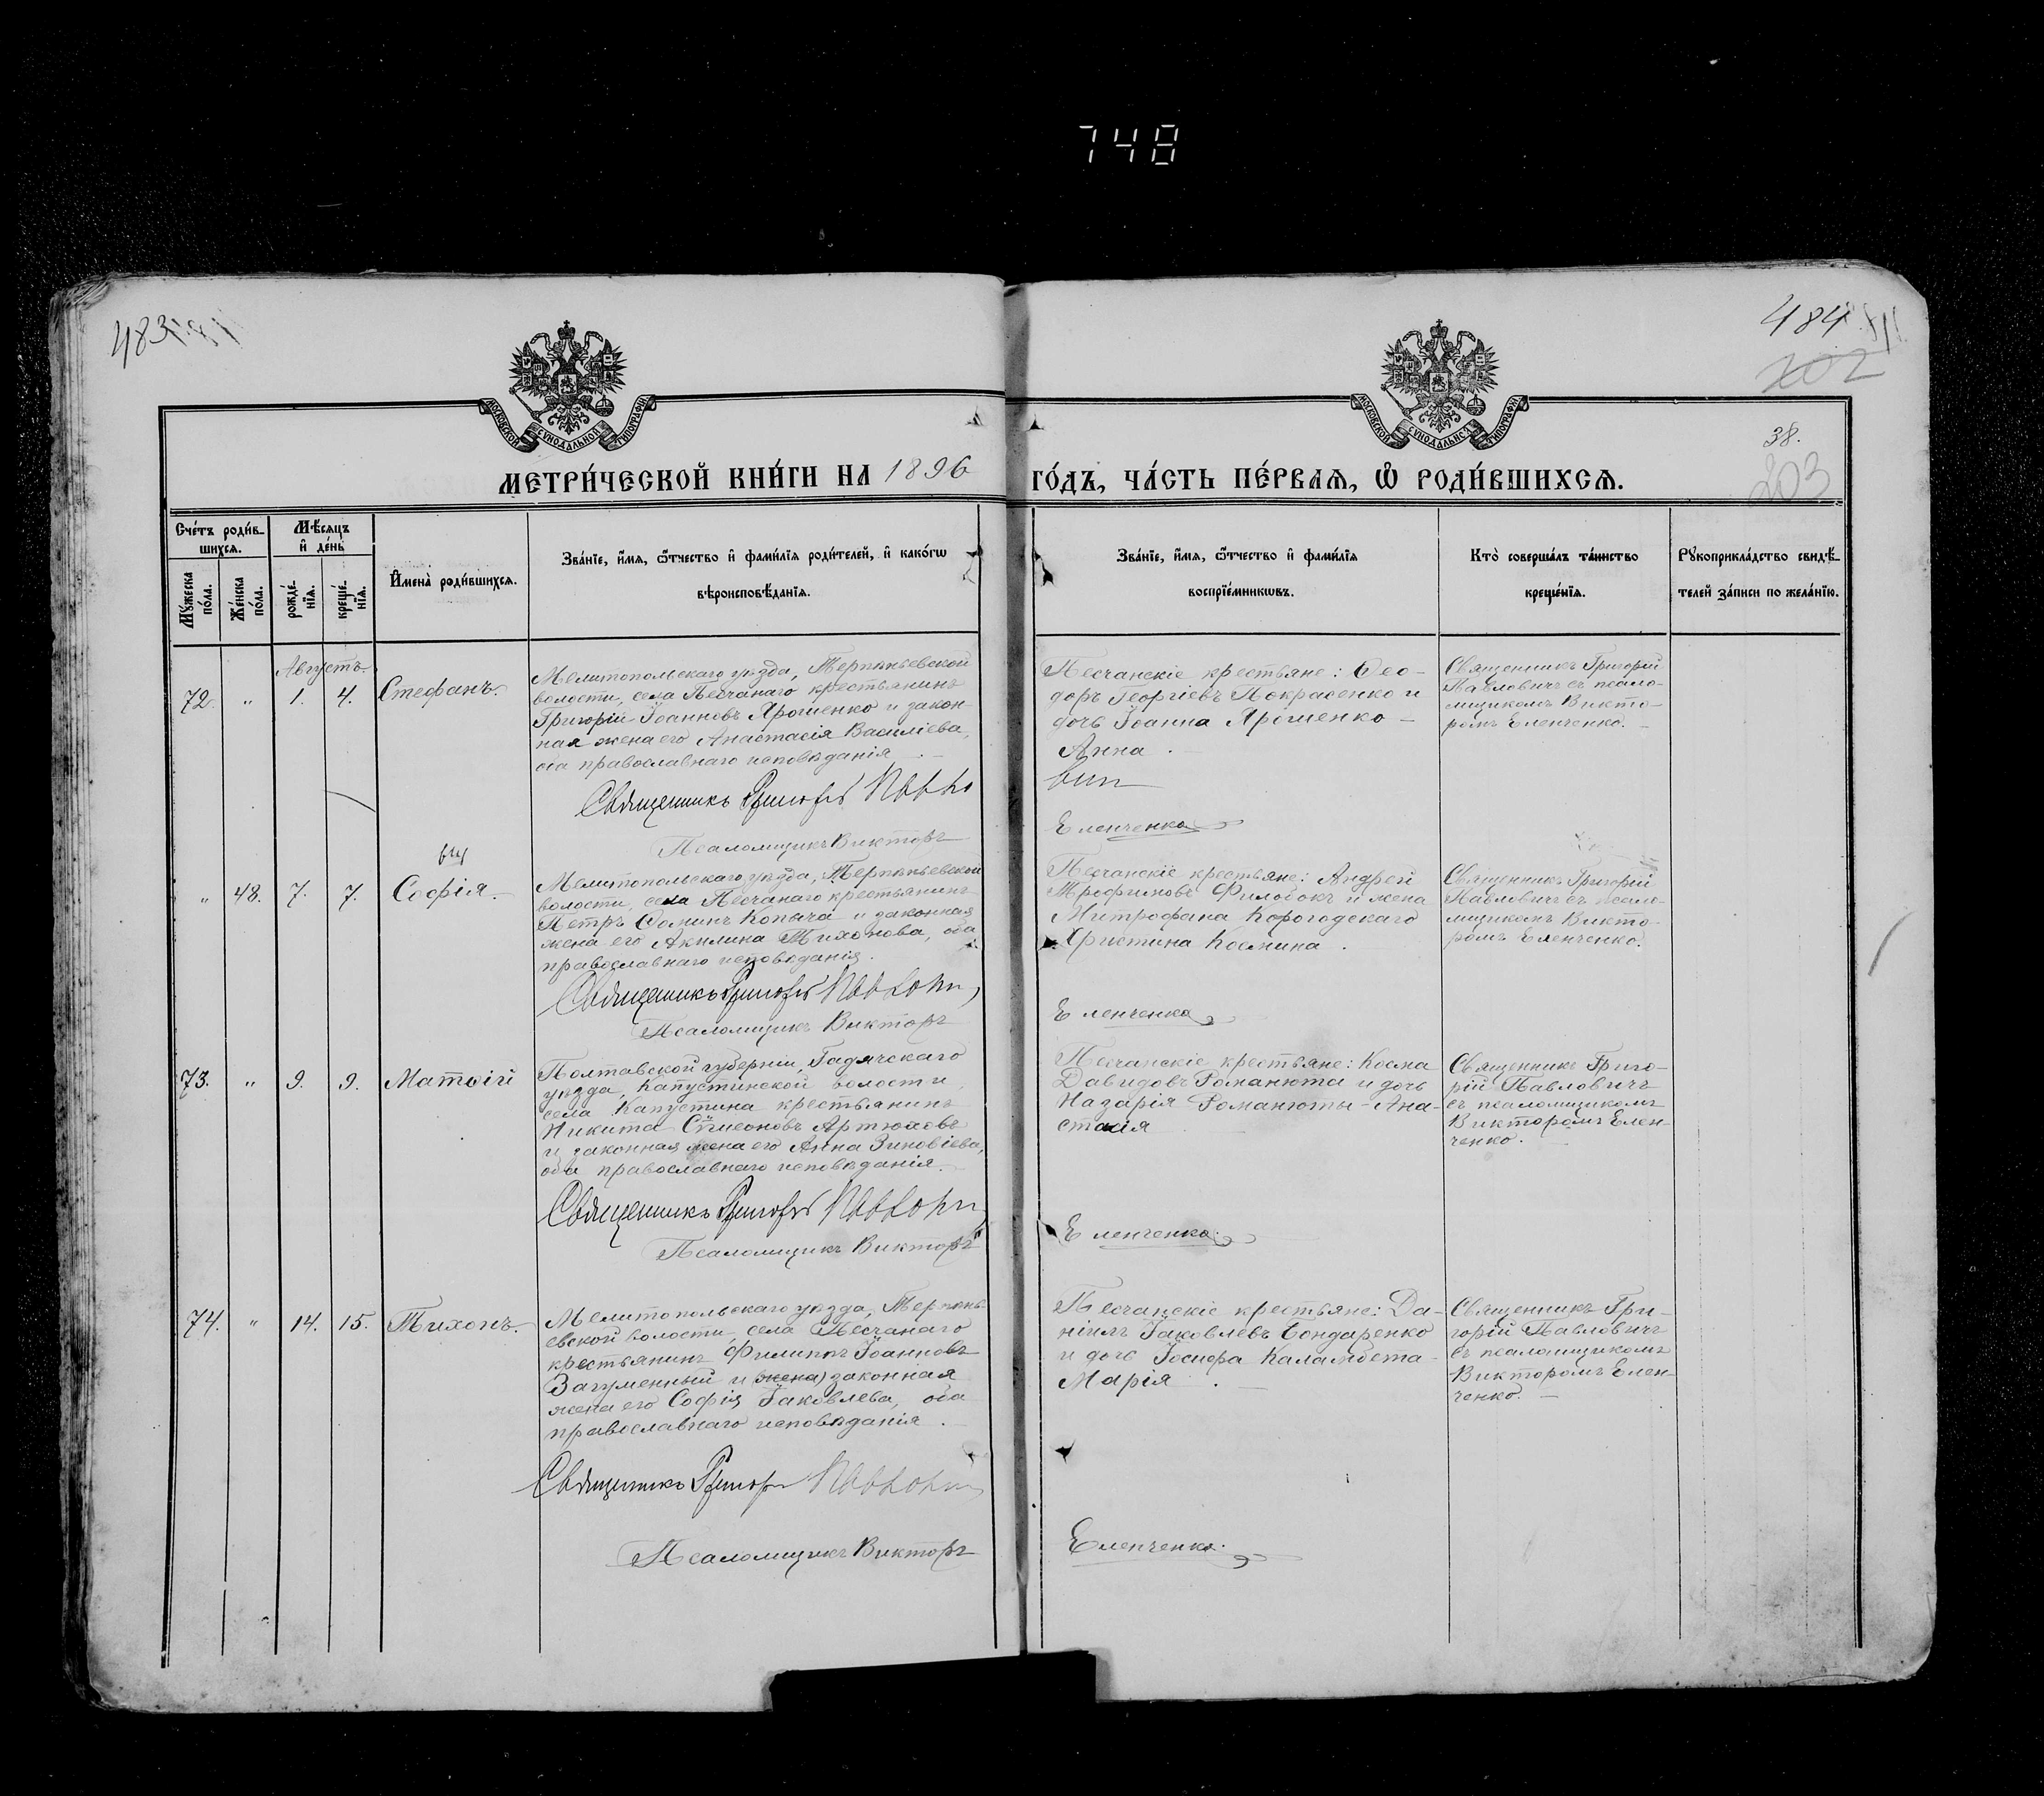 748
483
484
202
38.
203
МОСКОВСКОЙ СѴНОДАЛЬНОЙ ТИПОГРАФІИ
МОСКОВСКОЙ СѴНОДАЛЬНОЙ ТИПОГРАФІИ
МЕТРИ́ЧЕСКОЙ КНИ́ГИ НА 1896 ГО́ДЪ, ЧА́СТЬ ПЕ́РВАѦ, Ѡ҆ РОДИ́ВШИХСѦ.
Сче́тъ роди́в-
шихсѧ.
Мꙋ́жеска по́ла.
Же́нска по́ла.
Мѣ́сѧцъ
и҆ де́нь
рожде́-
нїѧ.
креще́-
нїѧ.
И҆мена̀ роди́вшихсѧ.
Зва́нїе, и҆́мѧ, ѻ҆́тчество и҆ фами́лїѧ роди́телей, и҆ како́гѡ
вѣроисповѣ́данїѧ.
Зва́нїе, и҆́мѧ, ѻ҆́тчество и҆ фами́лїѧ
воспрїе́мникѡвъ.
Кто̀ соверша́лъ та́инство
креще́нїѧ.
Рꙋкоприкла́дство свидѣ́-
телей за́писи по жела́нїю.
Августъ.
72. " 1. 4. Стефанъ.
Мелитопольскаго уѣзда, Терпѣньевской
волости, села Песчанаго крестьянинъ
Григорій Іоанновъ Ярошенко и закон-
ная жена его Анастасія Василіева,
оба православнаго исповѣданія.
Священникъ Григорій
Псаломщикъ Викторъ
Песчанскіе крестьяне: Ѳео-
доръ Георгіевъ и
дочь Іоанна Ярошенко –
Анна.
Еленченко
Священникъ Григорій
Павловичъ съ псало-
мщикомъ Викто-
ромъ Еленченко.
" 48. 7. 7. Софія.
Мелитопольскаго уѣзда, Терпѣньевской
волости, села Песчанаго крестьянинъ
Петръ Ѳоминъ Копыча и законная
жена его Акилина Тихонова, оба
православнаго исповѣданія.
Священникъ Григорій
Псаломщикъ Викторъ
Песчанскіе крестьяне: Андрей
Трофимовъ Филобокъ и жена
Митрофана Корогодскаго
Христина Космина.
Еленченко
Священникъ Григорій
Павловичъ съ псало-
мщикомъ Викто-
ромъ Еленченко.
73. " 9. 9. Матѳій
Полтавской губерніи, Гадячскаго
уѣзда, Капустинской волости,
села Капустина крестьянинъ
Никита Сѵмеоновъ Артюховъ
и законная жена его Анна Зиновіева,
оба православнаго исповѣданія.
Священникъ Григорій
Псаломщикъ Викторъ
Песчанскіе крестьяне: Косма
Давидовъ Романюта и дочь
Назарія Романюты – Ана-
стасія
Еленченко
Священникъ Григо-
рій Павловичъ
съ псаломщикомъ
Викторомъ Елен-
ченко.
74. " 14. 15. Тихонъ.
Мелитопольскаго уѣзда, Терпѣнь-
евской волости, села Песчанаго
крестьянинъ Филиппъ Іоанновъ
Загуменный и (жена) законная
жена его Софія Іаковлева, оба
православнаго исповѣданія.
Священникъ Григорій
Псаломщикъ Викторъ
Песчанскіе крестьяне: Да-
ніилъ Іаковлевъ Бондаренко
и дочь Іосифа Каламбета –
Марія.
Еленченко.
Священникъ Гри-
горій Павловичъ
съ псаломщикомъ
Викторомъ Елен-
ченко.